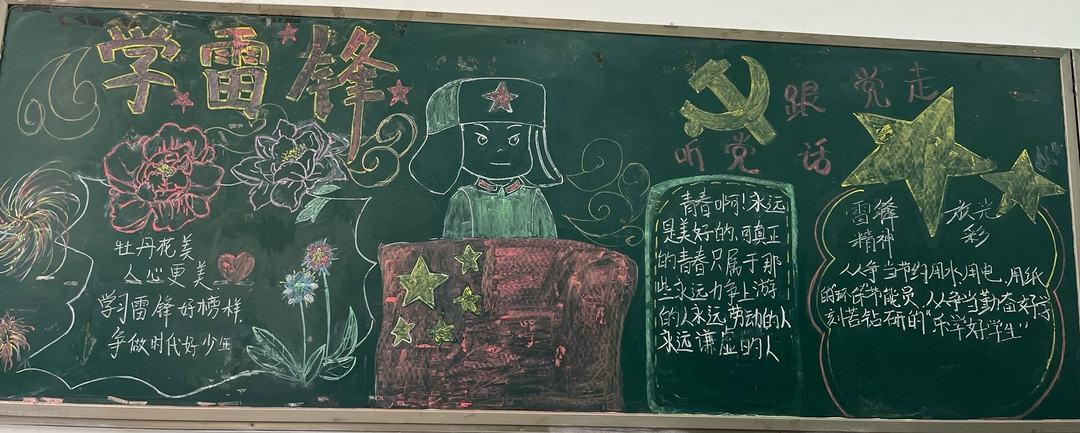 学雷锋
牡丹花美
人心更美
学习雷锋好榜样
争做时代好少年
跟党走
听党话
青春啊!永远
是美好的,可真正
的青春只属于那
些永远力争上游
的人永远劳动的人
永远谦虚的人
雷锋 放光
精神 彩
人人争当节约用水,用电,用纸
的环保节能员,人人争当勤奋好学
刻苦钻研的“乐学好学生”